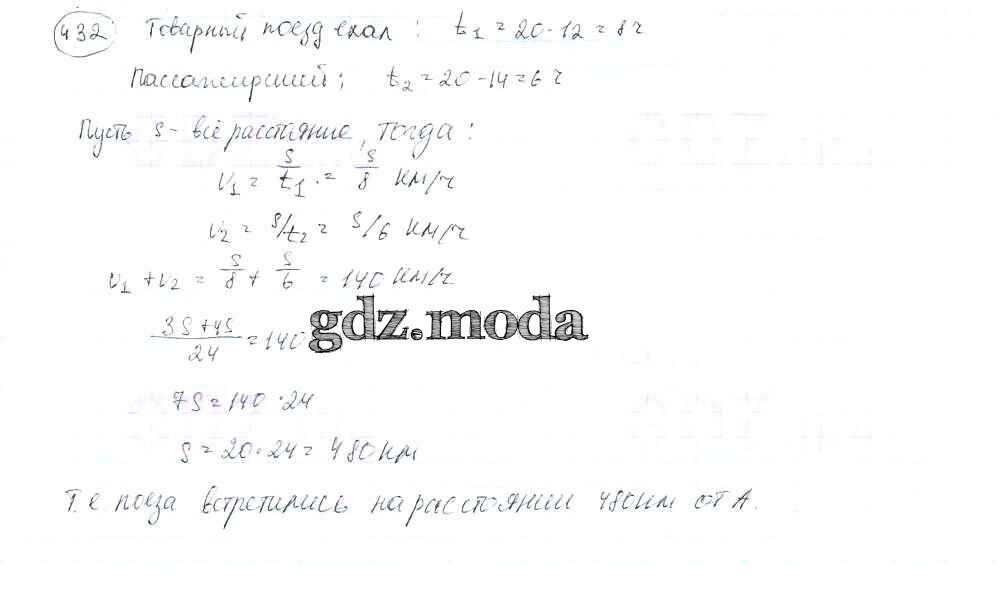 432 Товарный поезд ехал : t₁ = 20 - 12 = 8 ч
Пассажирский ; t₂ = 20 - 14 = 6 ч
Пусть S - всё расстояние, тогда :
v₁ = S/t₁ = S/8 км/ч
v₂ = S/t₂ = S/6 км/ч
v₁ + v₂ = S/8 + S/6 = 140 км/ч
(3S + 4S)/24 = 140
gdz.moda
7S = 140 · 24
S = 20 · 24 = 480 км
Т.е. поеза встретились на расстоянии 480 км от А.